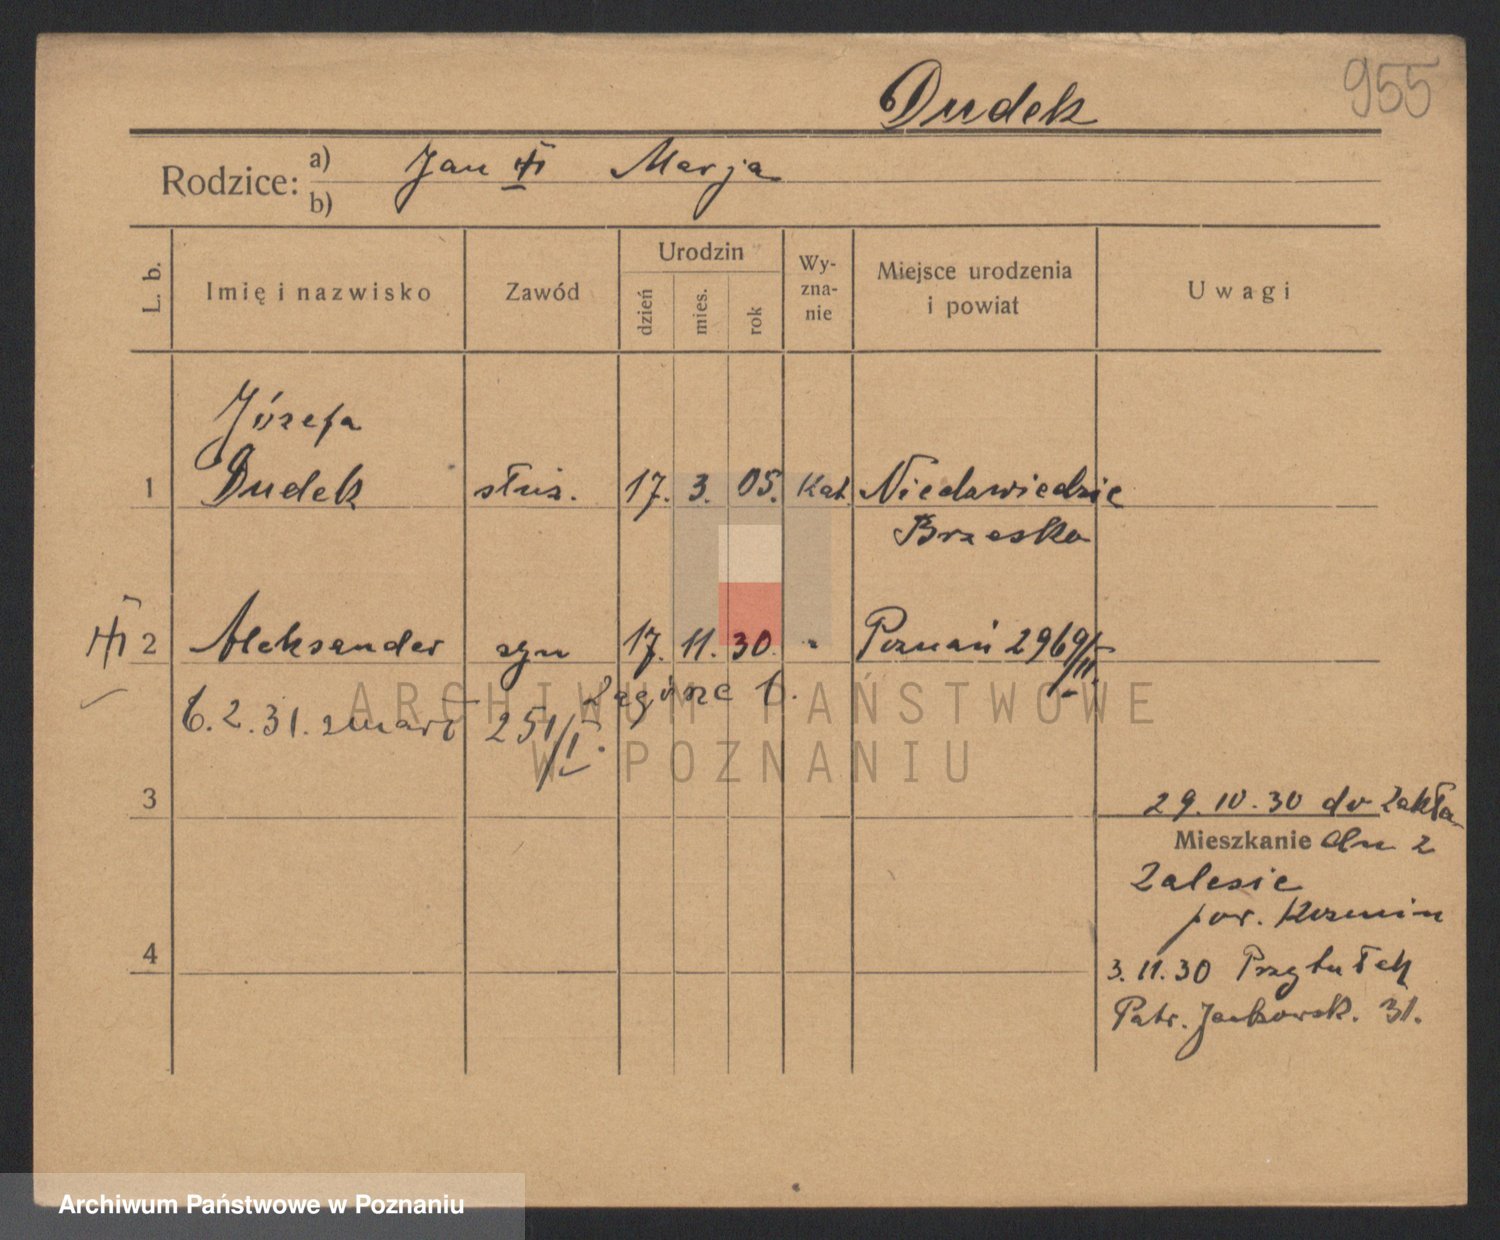 955
Dudek
Rodzice: a) Jan Marja
b)
L. b. Imię i nazwisko Zawód Urodzin dzień mies. rok Wy-zna-nie Miejsce urodzenia i powiat Uwagi
Józefa
1 Dudek służ. 17. 3. 05. Kat. Niedźwiedzie
Brzesko
2 Aleksander syn 17. 11. 30. " Poznań 2969/II.
6.2.31. zmarł 251/I.
3
29.10.30 do Zakła-
Mieszkanie du z
Zalesie
pow. Kozmin
4
3.11.30 Przytułek
Patr. Jackowsk. 31.
ARCHIWUM PAŃSTWOWE
W POZNANIU
Archiwum Państwowe w Poznaniu